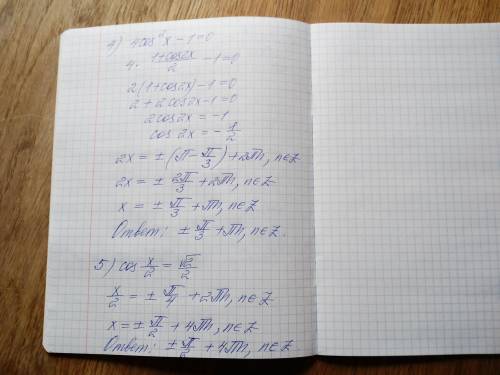 4) 4cos²x − 1 = 0
4 · (1+cos2x)/2 − 1 = 0
2(1+cos2x) − 1 = 0
2 + 2cos2x − 1 = 0
2cos2x = −1
cos 2x = −1/2
2x = ± (π − π/3) + 2πn, n∈Z
2x = ± 2π/3 + 2πn, n∈Z
x = ± π/3 + πn, n∈Z
Ответ: ± π/3 + πn, n∈Z.
5) cos x/2 = √2/2
x/2 = ± π/4 + 2πn, n∈Z
x = ± π/2 + 4πn, n∈Z
Ответ: ± π/2 + 4πn, n∈Z.